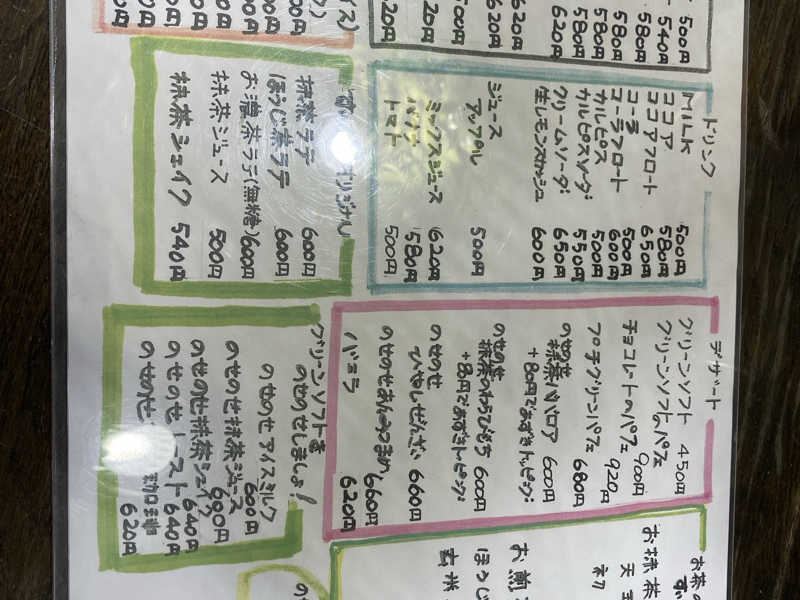 500円
540円
580円
580円
580円
580円
620円
620円
620円
500円
ドリンク
MILK 500円
ココア 580円
ココアフロート 650円
コーラ 500円
コーラフロート 600円
カルピス 500円
カルピスソーダ 550円
クリームソーダ 650円
生レモンスカッシュ 600円
ジュース
アップル 500円
ミックスジュース 620円
580円
トマト 500円
オリジナル
抹茶ラテ 600円
ほうじ茶ラテ 600円
お濃茶ラテ(無糖) 600円
抹茶ジュース 500円
抹茶シェイク 540円
デザート
グリーンソフト 450円
グリーンソフトのパフェ 900円
チョコレートのパフェ 920円
プチグリーンパフェ 680円
のせのせ
抹茶ババロア 600円
+80円であずきトッピング
のせのせ
抹茶のわらびもち 600円
+80円であずきトッピング
のせのせ
ひやしぜんざい 660円
のせのせあんみつ 660円
バニラ 620円
グリーンソフトを
のせのせしましょ!
のせのせアイスミルク 600円
のせのせ抹茶ジュース 600円
のせのせ抹茶シェイク 640円
のせのせトースト 640円
のせのせ 珈琲 620円
お茶の
お抹茶
天
ネワ
お煎
ほうじ
玄米
の